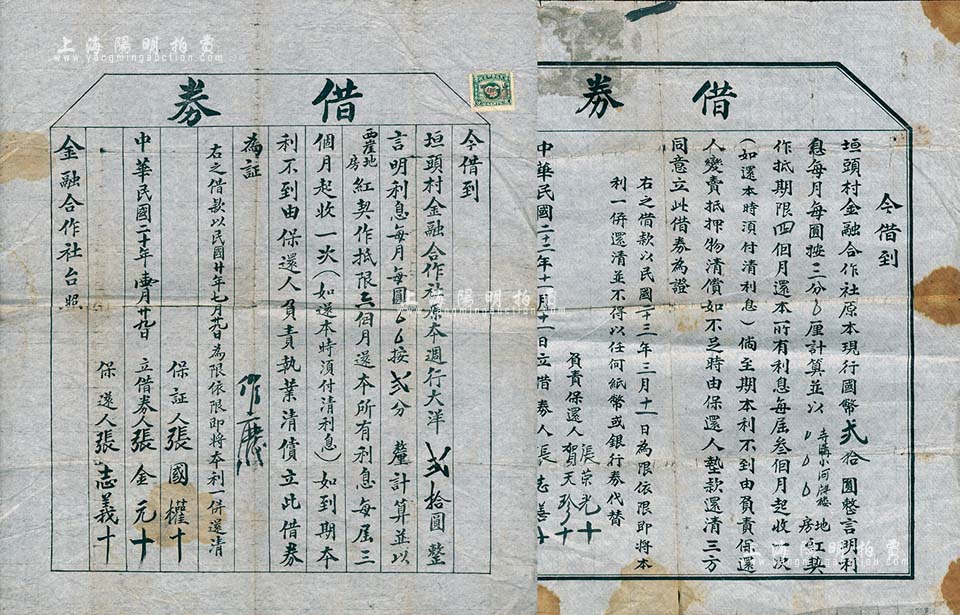 借券
今借到
垣頭村金融合作社原本週行大洋貳拾圓整
言明利息每月每圓按貳分釐計算並以
西崖地房紅契作抵限六個月還本所有利息每屆三
個月起收一次（如還本時須付清利息）如到期本
利不到由保還人負責執業清償立此借券
為証
右之借款以民國廿年七月廿九日為限依限即將本利一併還清
保証人張國權十
中華民國二十年壹月廿九日立借券人張金元十
保還人張志義十
金融合作社台照
借券
今借到
垣頭村金融合作社原本現行國幣貳拾圓整言明利
息每月每圓按三分厘計算並以地房紅契
作抵期限四個月還本所有利息每屆叁個月起收一次
（如還本時須付清利息）倘至期本利不到由負責保還
人變賣抵押物清償如不足時由保還人墊款還清三方
同意立此借券為證
右之借款以民國二十三年三月十一日為限依限即將本
利一併還清並不得以任何紙幣或銀行券代替
負責保還人張榮光十賀天珍十
中華民國二十二年十一月十一日立借券人張志善十
上海陽明拍賣
www.yangmingauction.com